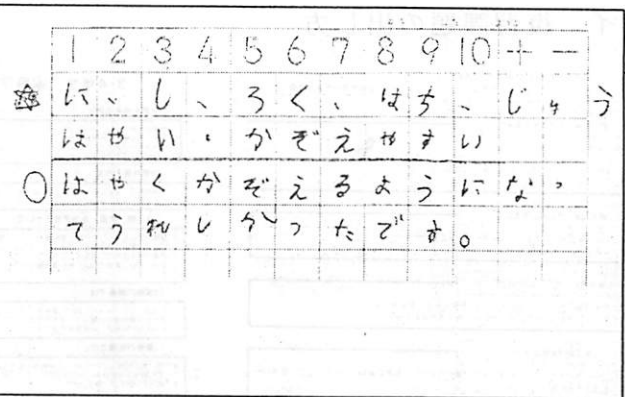 1 2 3 4 5 6 7 8 9 10 + −
に、し、ろく、はち、じゅう
はやい・かぞえやすい
はやくかぞえるようになっ
てうれしかったです。